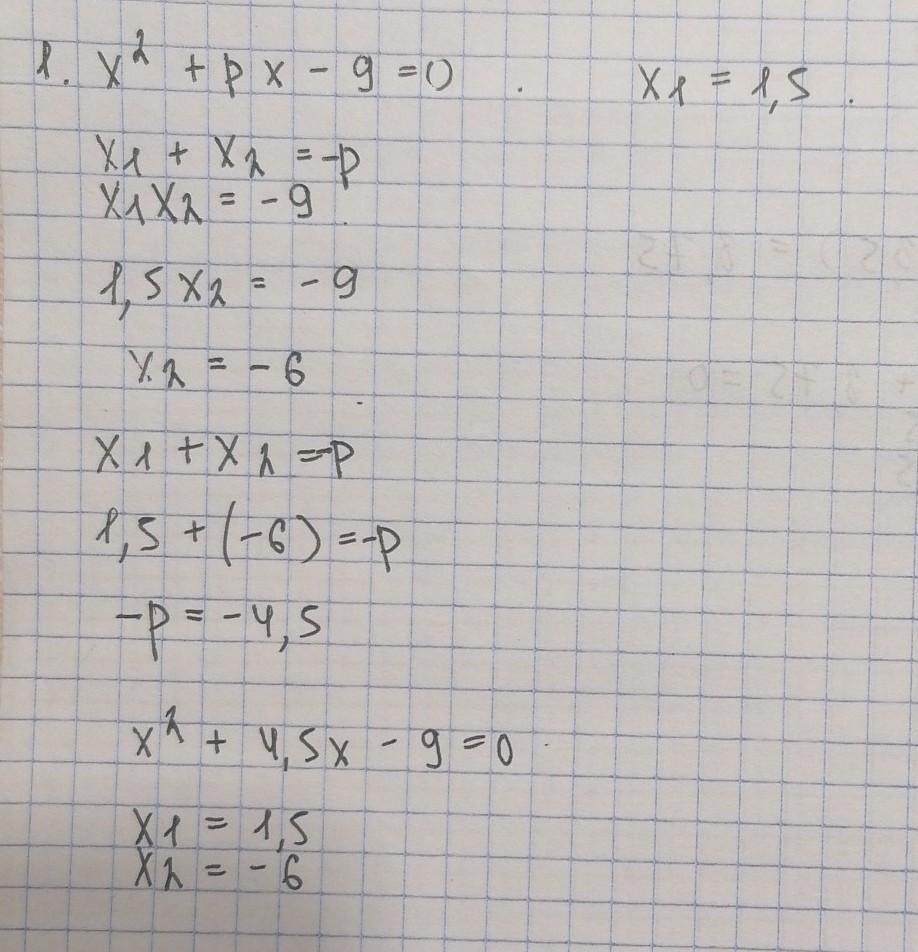 1. x² + p x - 9 = 0 . x1 = 1,5 .
x1 + x2 = -p
x1x2 = -9
1,5x2 = -9
x2 = -6
x1 + x2 = -p
1,5 + (-6) = -p
-p = -4,5
x² + 4,5x - 9 = 0
x1 = 1,5
x2 = -6